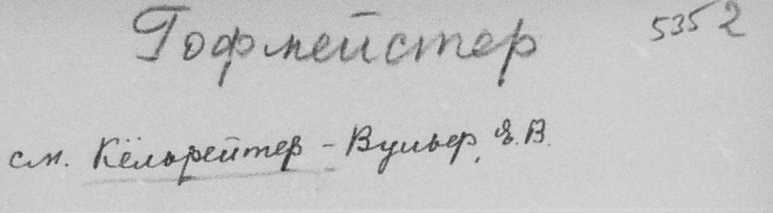 Гофмейстер 5352
см. Кёльрейтер - Вульер, Я.В.